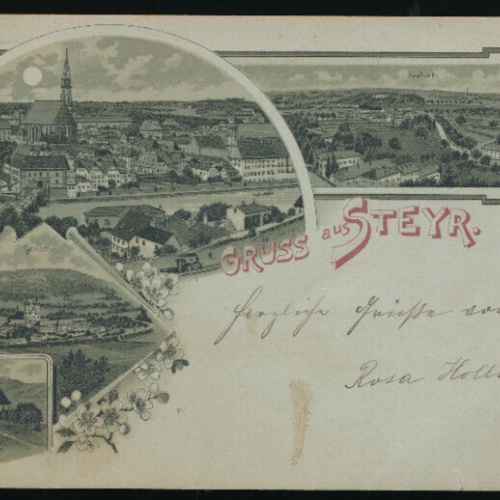 GRUSS aus STEYR.
Herzliche Grüße von
Rosa